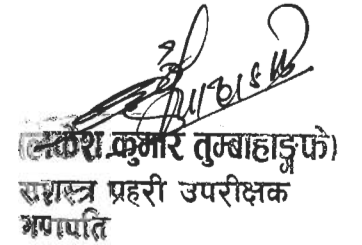 (लोकेश कुमार तुम्बाहाङ्फे)
सशस्त्र प्रहरी उपरीक्षक
गणपति